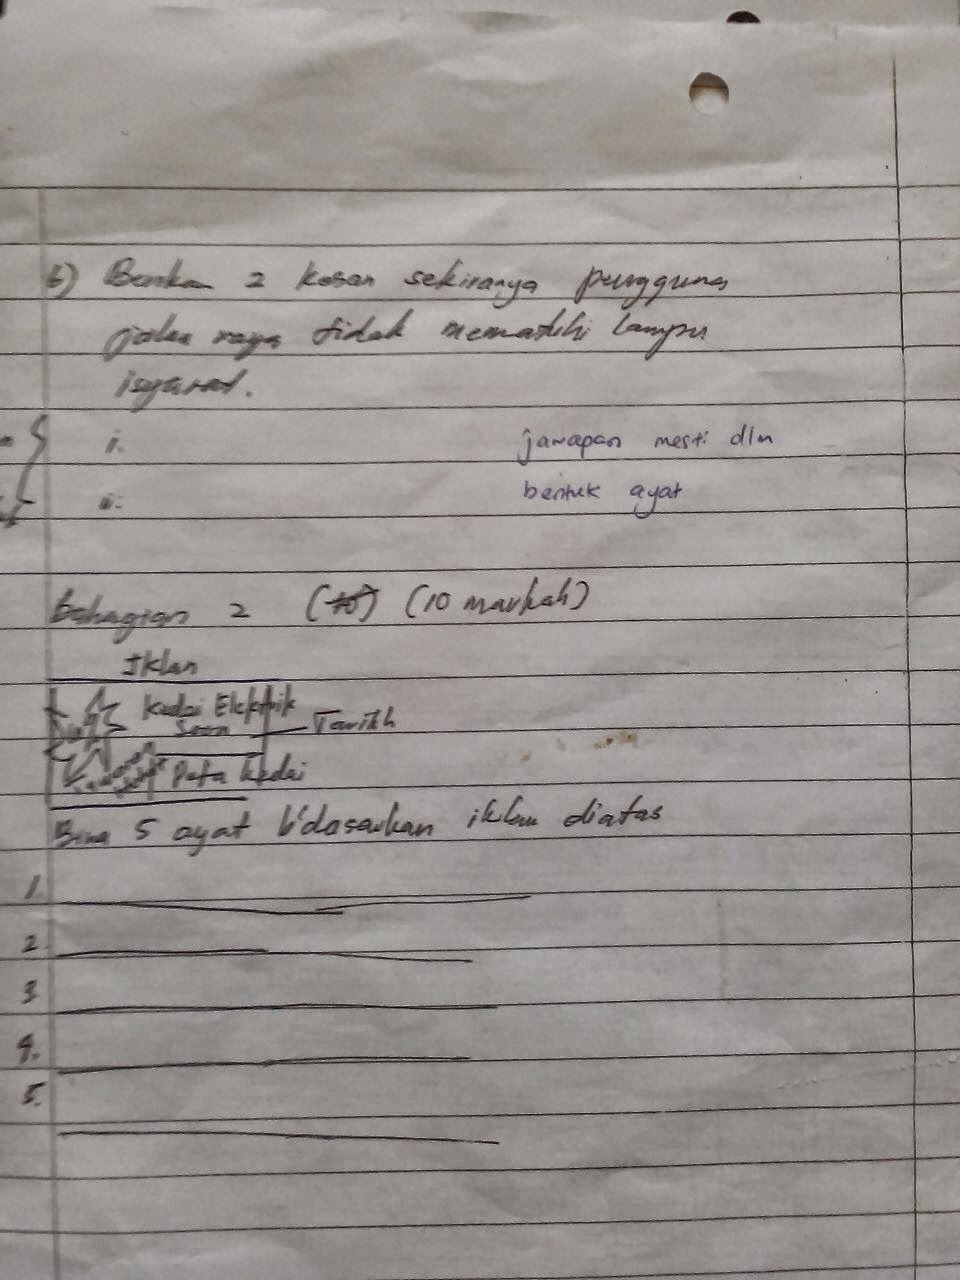 b) Berikan 2 kesan sekiranya pengguna
jalan raya tidak mematuhi lampu
isyarat.
i. jawapan mesti dlm
ii. bentuk ayat
Bahagian 2 (10) (10 markah)
Iklan
Kedai Elektrik
Soon Tarikh
Peta kedai
Bina 5 ayat b'dasarkan iklan diatas
1.
2.
3
4.
5.